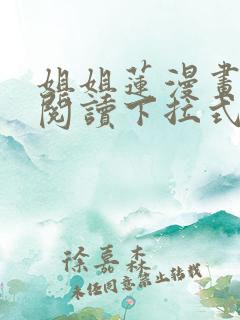 姐姐蓮漫畫
閱讀下拉式
徐嘉森
未经同意禁止转载